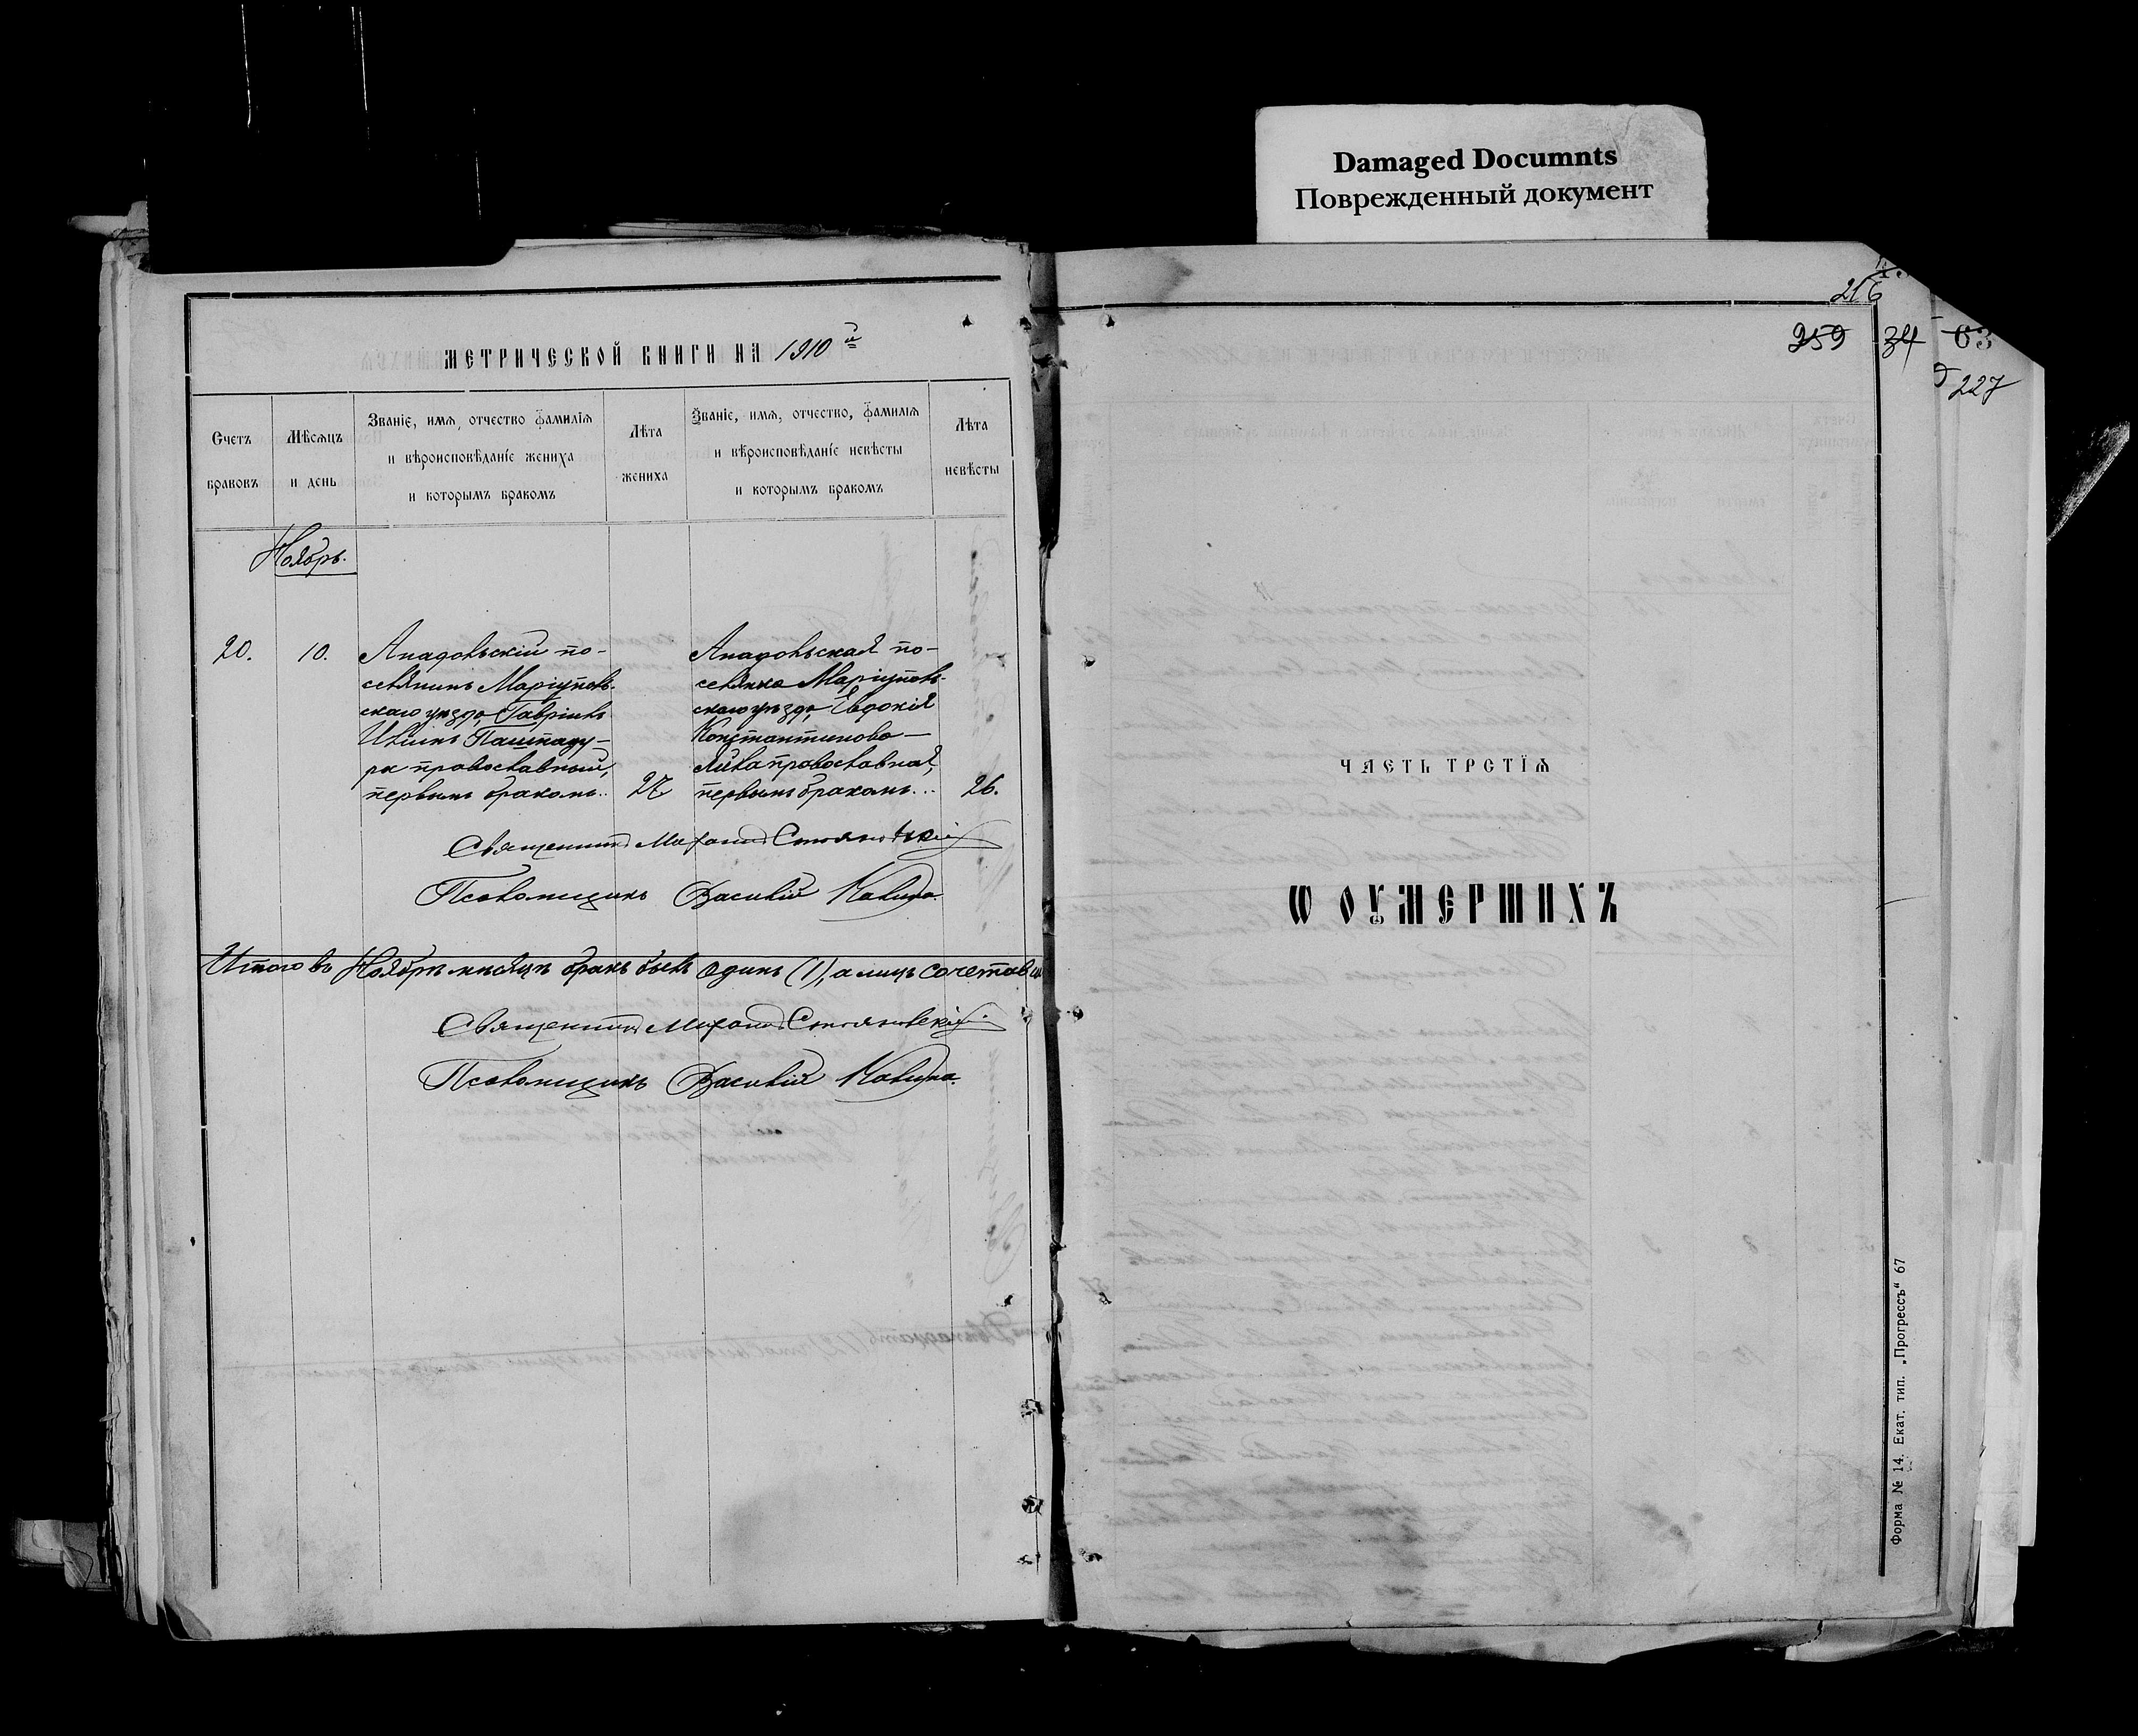 Damaged Documnts
Поврежденный документ
МЕТРИЧЕСКОЙ КНИГИ НА 1910 й
Счетъ браковъ
Мѣсяцъ и день
Званіе, имя, отчество фамилія и вѣроисповѣданіе жениха и которымъ бракомъ
Лѣта жениха
Званіе, имя, отчество, фамилія и вѣроисповѣданіе невѣсты и которымъ бракомъ
Лѣта невѣсты
Ноябрь.
20.
10.
Анадольскій по-
селянинъ Маріуполь-
скаго уѣзда, Гавріилъ
Ивановъ
ра православный,
первымъ бракомъ..
27
Анадольская по-
селянка Маріуполь-
скаго уѣзда, Евдокія
Константинова
православная,
первымъ бракомъ...
26.
Священникъ Михаилъ Стояновскій
Псаломщикъ Василій
Итого въ Ноябрѣ мѣсяцѣ бракъ былъ одинъ (1), а лицъ сочетав
Священникъ Михаилъ Стояновскій
Псаломщикъ Василій
216
259 34 63
227
ЧАСТЬ ТРЕТІЯ
Ѡ ОУМЕРШИХЪ
Форма № 14. Екат. тип. „Прогрессъ“ 67